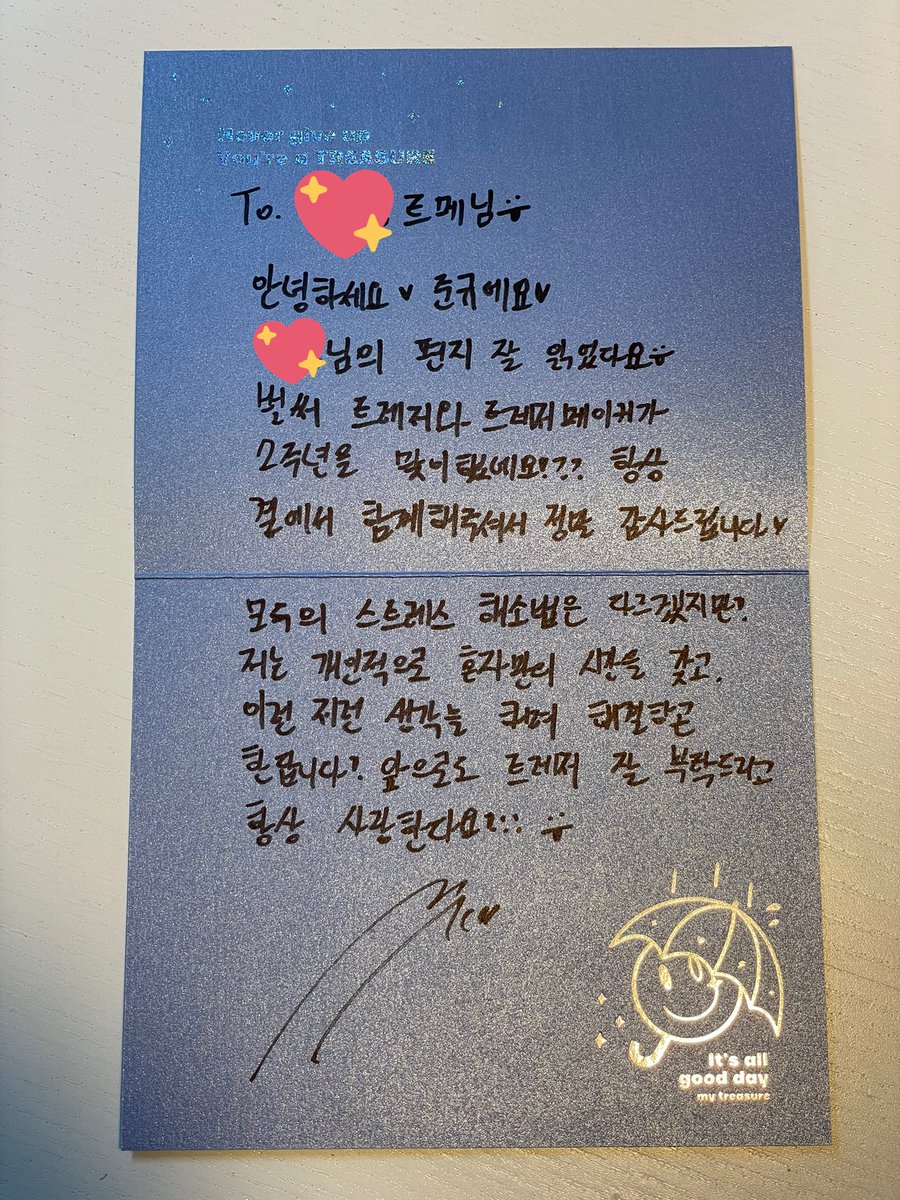 Never give up
You're a TREASURE
To. 트메님
안녕하세요 ♥ 준규에요♥
님의 편지 잘 읽었다요
벌써 트레저와 트레저메이커가
2주년을 맞이했네요!?? 항상
곁에서 함께해주셔서 정말 감사드립니다♥
모두의 스트레스 해소법은 다르겠지만?
저는 개인적으로 혼자만의 시간을 갖고,
이런 저런 생각을 하며 해결하곤
한답니다?. 앞으로도 트레저 잘 부탁드리고
항상 사랑한다요?:::
It's all
good day
my treasure